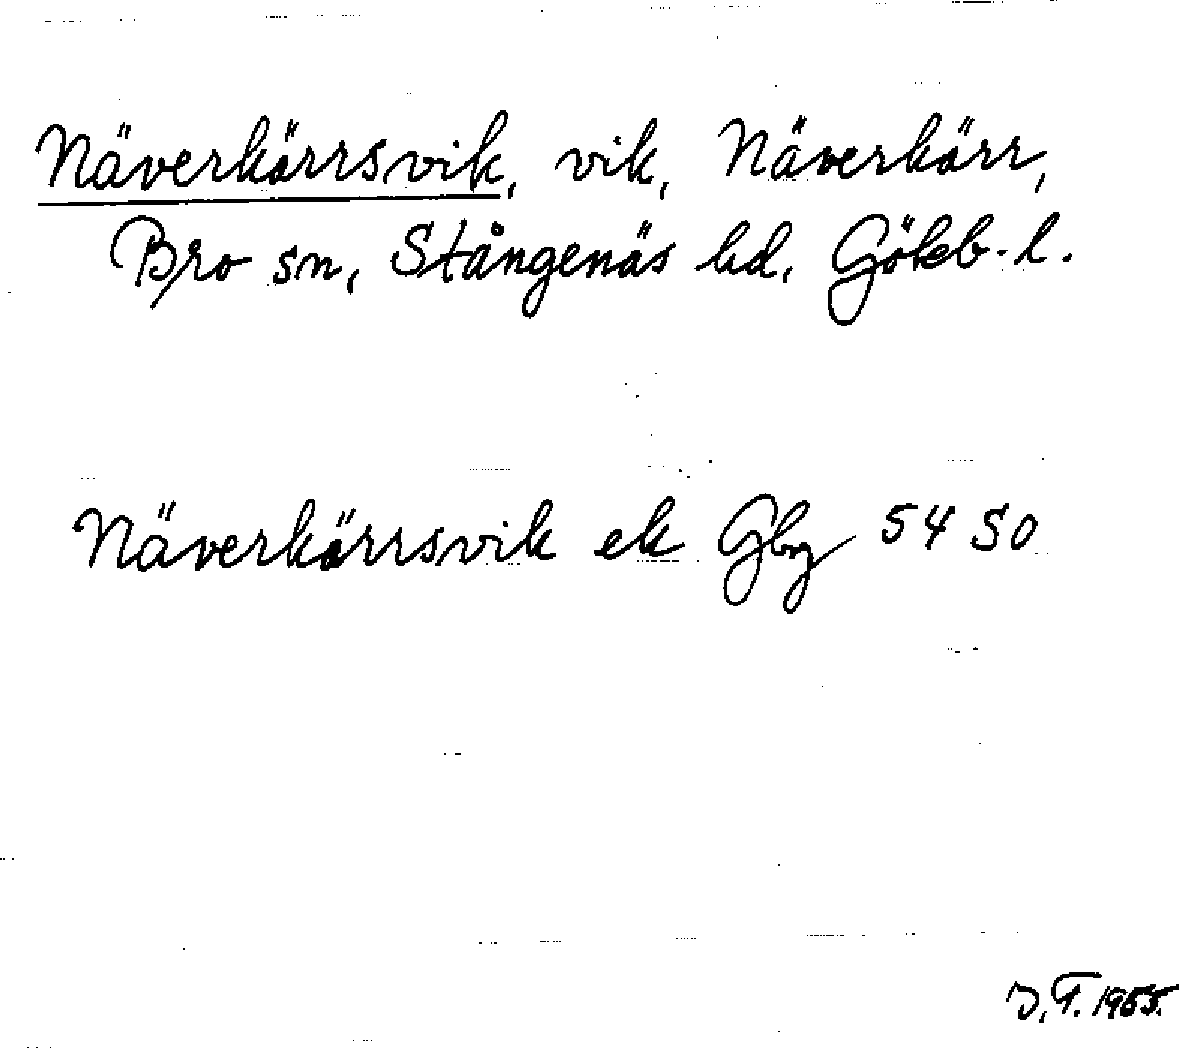 Näverkärrsvik, vik, Näverkärr,
Bro sn, Stångenäs hd, Göteb-l.
Näverkärrsvik ek Gbg 54 SO
J.T. 1955.